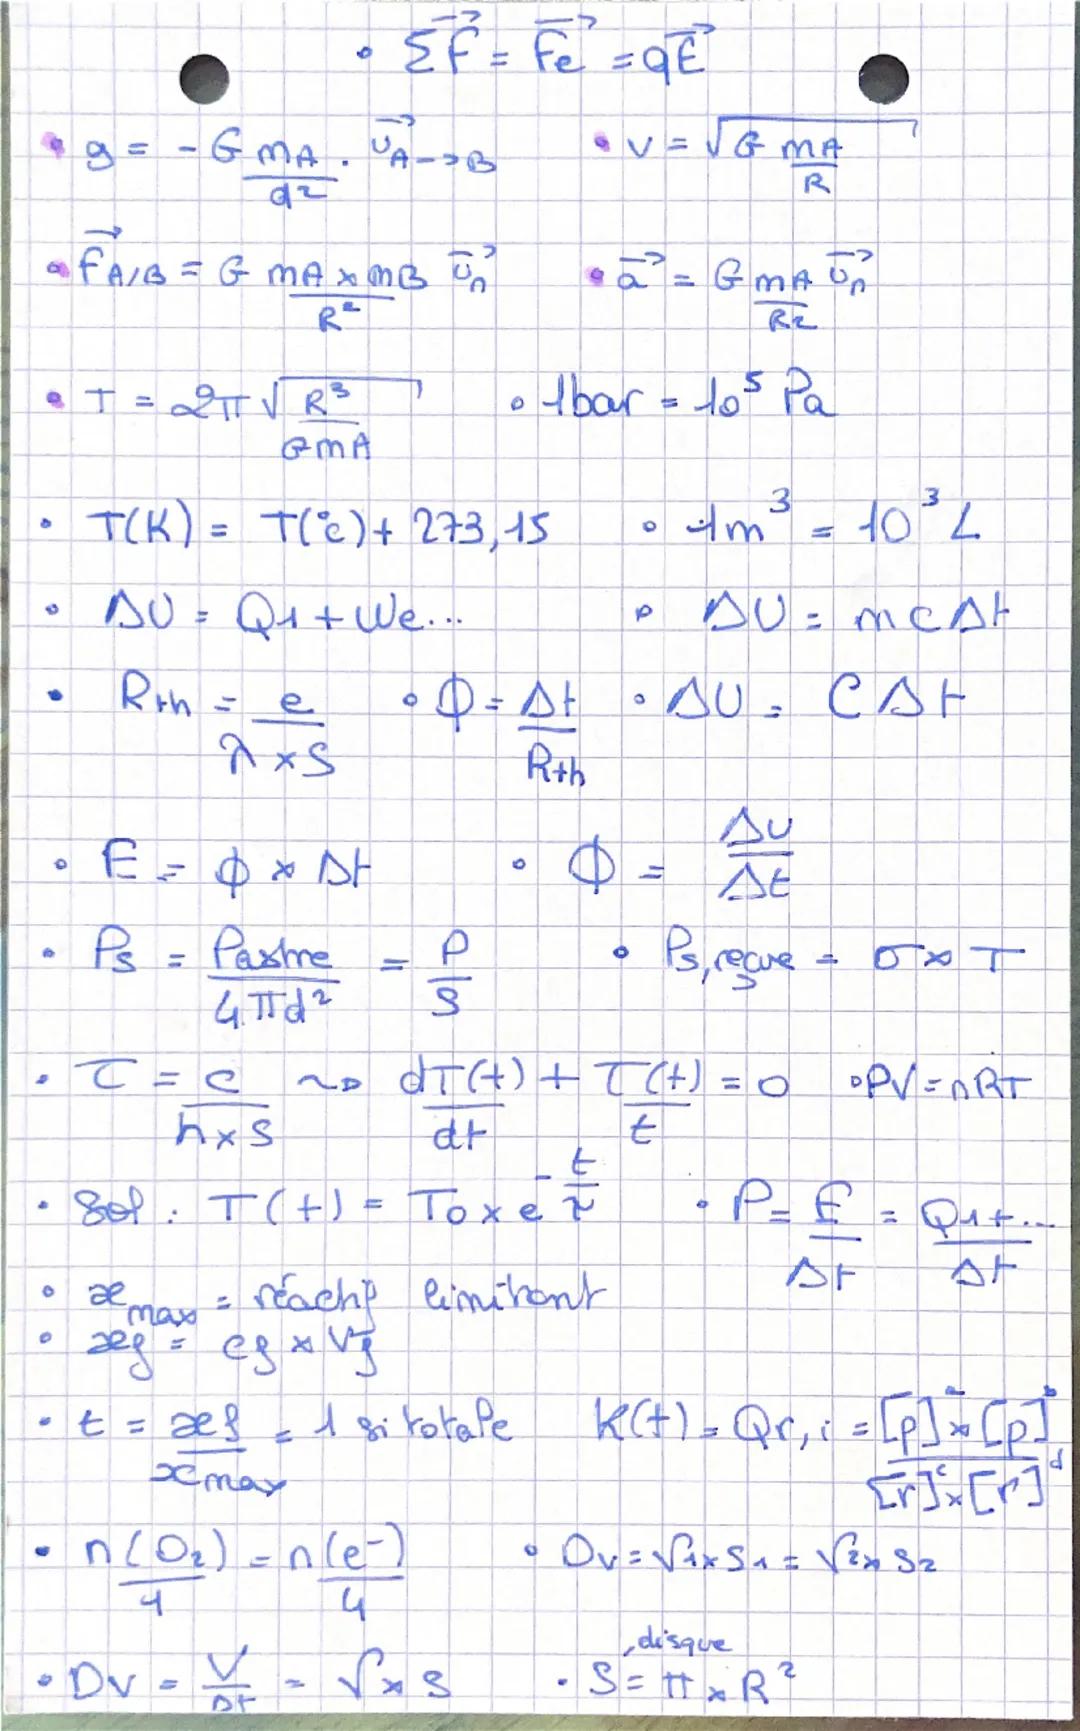 • ΣF⃗ = Fe⃗ = qE⃗
• g = - G mA/d² . u⃗A->B • v = √(G mA/R)
• F⃗A/B = G mA x mB/R² u⃗n • a⃗ = G mA/R2 u⃗n
• T = 2π √(R³/GmA) • 1bar = 10⁵ Pa
• T(K) = T(°c) + 273,15 • 1m³ = 10³ L
• ΔU = Q1 + We... • ΔU = mcΔt
• Rth = e/(λ x S) • Φ = Δt/Rth • ΔU = CΔt
• E = Φ x Δt • Φ = ΔU/Δt
• Ps = Pastre/4πd² = P/S • Ps,reçue = σ x T
• τ = c/(h x S) ~> dT(t)/dt + T(t)/t = 0 • PV = nRT
• Sol : T(t) = To x e^(-t/τ) • P = E/Δt = Q1+.../Δt
• xmax = réactif limitant
• xf = cf x Vf
• t = xf/xmax = 1 si totale K(t) = Qr,i = [p]ᵃ x [p]ᵇ/[r]ᶜ x [r]ᵈ
• n(O2)/1 = n(e-)/4 • Dv = v1 x S1 = v2 x S2
• Dv = V/Δt = v x S • S = π x R² , disque